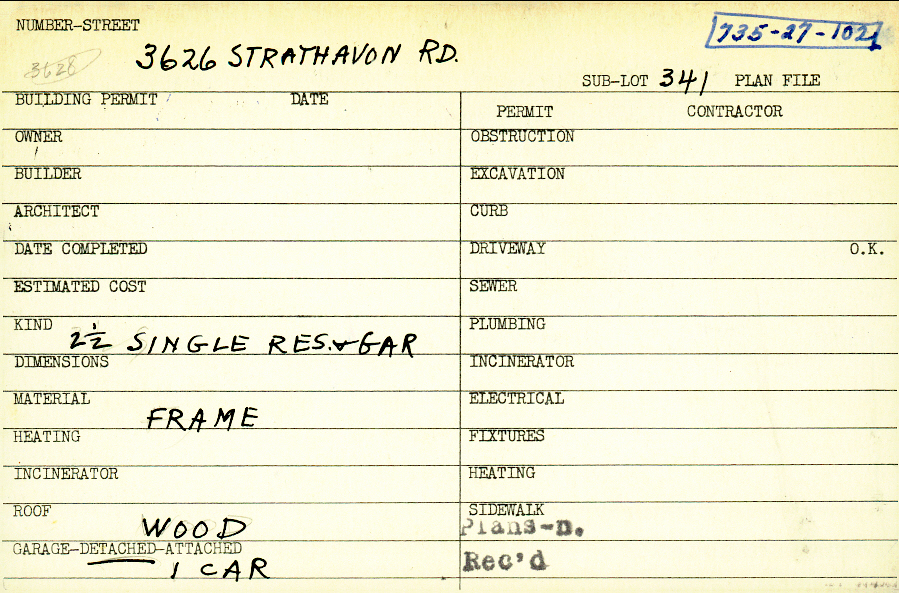 NUMBER-STREET
735-27-102
3626 STRATHAVON RD.
3628
SUB-LOT 341 PLAN FILE
BUILDING PERMIT DATE
PERMIT CONTRACTOR
OWNER
OBSTRUCTION
BUILDER
EXCAVATION
ARCHITECT
CURB
DATE COMPLETED
DRIVEWAY O.K.
ESTIMATED COST
SEWER
KIND
2½ SINGLE RES. & GAR
PLUMBING
DIMENSIONS
INCINERATOR
MATERIAL
FRAME
ELECTRICAL
HEATING
FIXTURES
INCINERATOR
HEATING
ROOF
WOOD
SIDEWALK
Plans-n.
GARAGE-DETACHED-ATTACHED
1 CAR
Rec'd